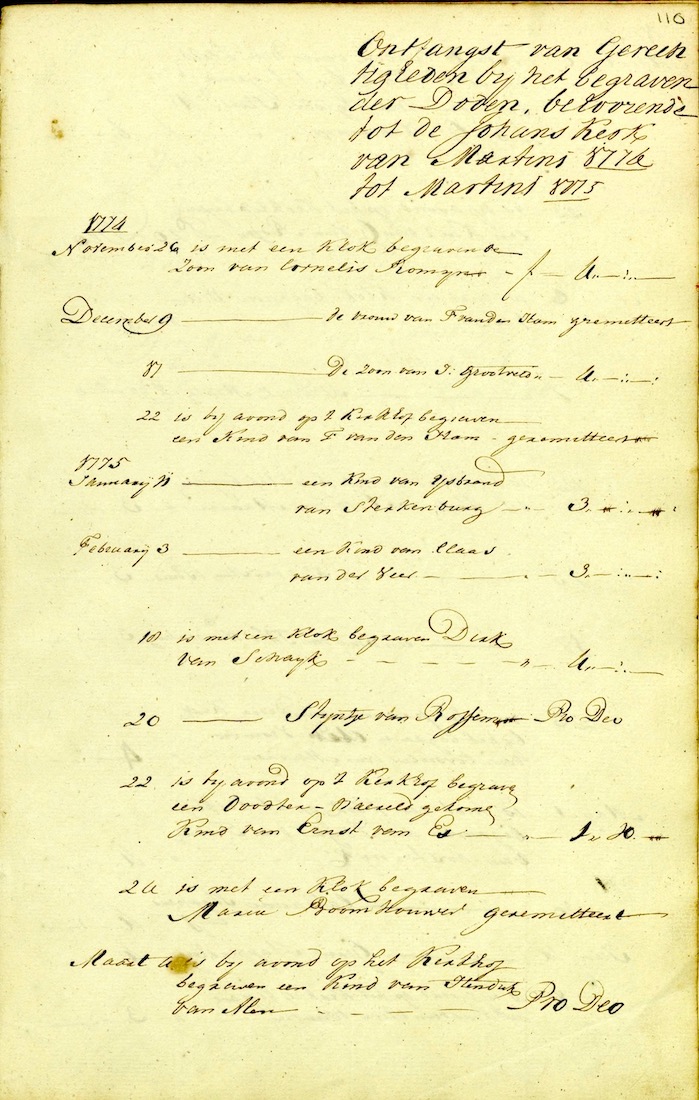 110
Ontfangst van Gerech
tigheden by het begraven
der Doden, behoorende
tot de Johans Kerk
van Martini 1774
tot Martini 1775
1774
November 24 is met een Klok begraven de
Zoon van Cornelis Romyn - f - 4.. -:..-
December 9 de vrouw van F van den Ham geremitteert
11 de Zoon van J: Grootveld .. - 4.. -:..-:
22 is by avond op 't Kerkhof begraven
een Kind van F van den Ham - geremitteert
1775
January 11 een Kind van Ysbrand
van Sterkenburg - .. 3.. -:..-
February 3 een Kind van Claas
van der Veer - - 3.. -:..-:
18 is met een Klok begraven Dirk
van Schayk - - - - - .. - 4.. -:..-
20 Styntje van Rossem Pro Deo
22 is by avond op 't Kerkhof begrave
een Doodter Waereld gekome
Kind van Ernst van Es .. 1.. 10.. -
24 is met een Klok begraven
Maria Boomhouwer geremitteert
Maart 4 is by avond op het Kerkhof
begraven een Kind van Hendrik
van Alen - - - - - Pro Deo